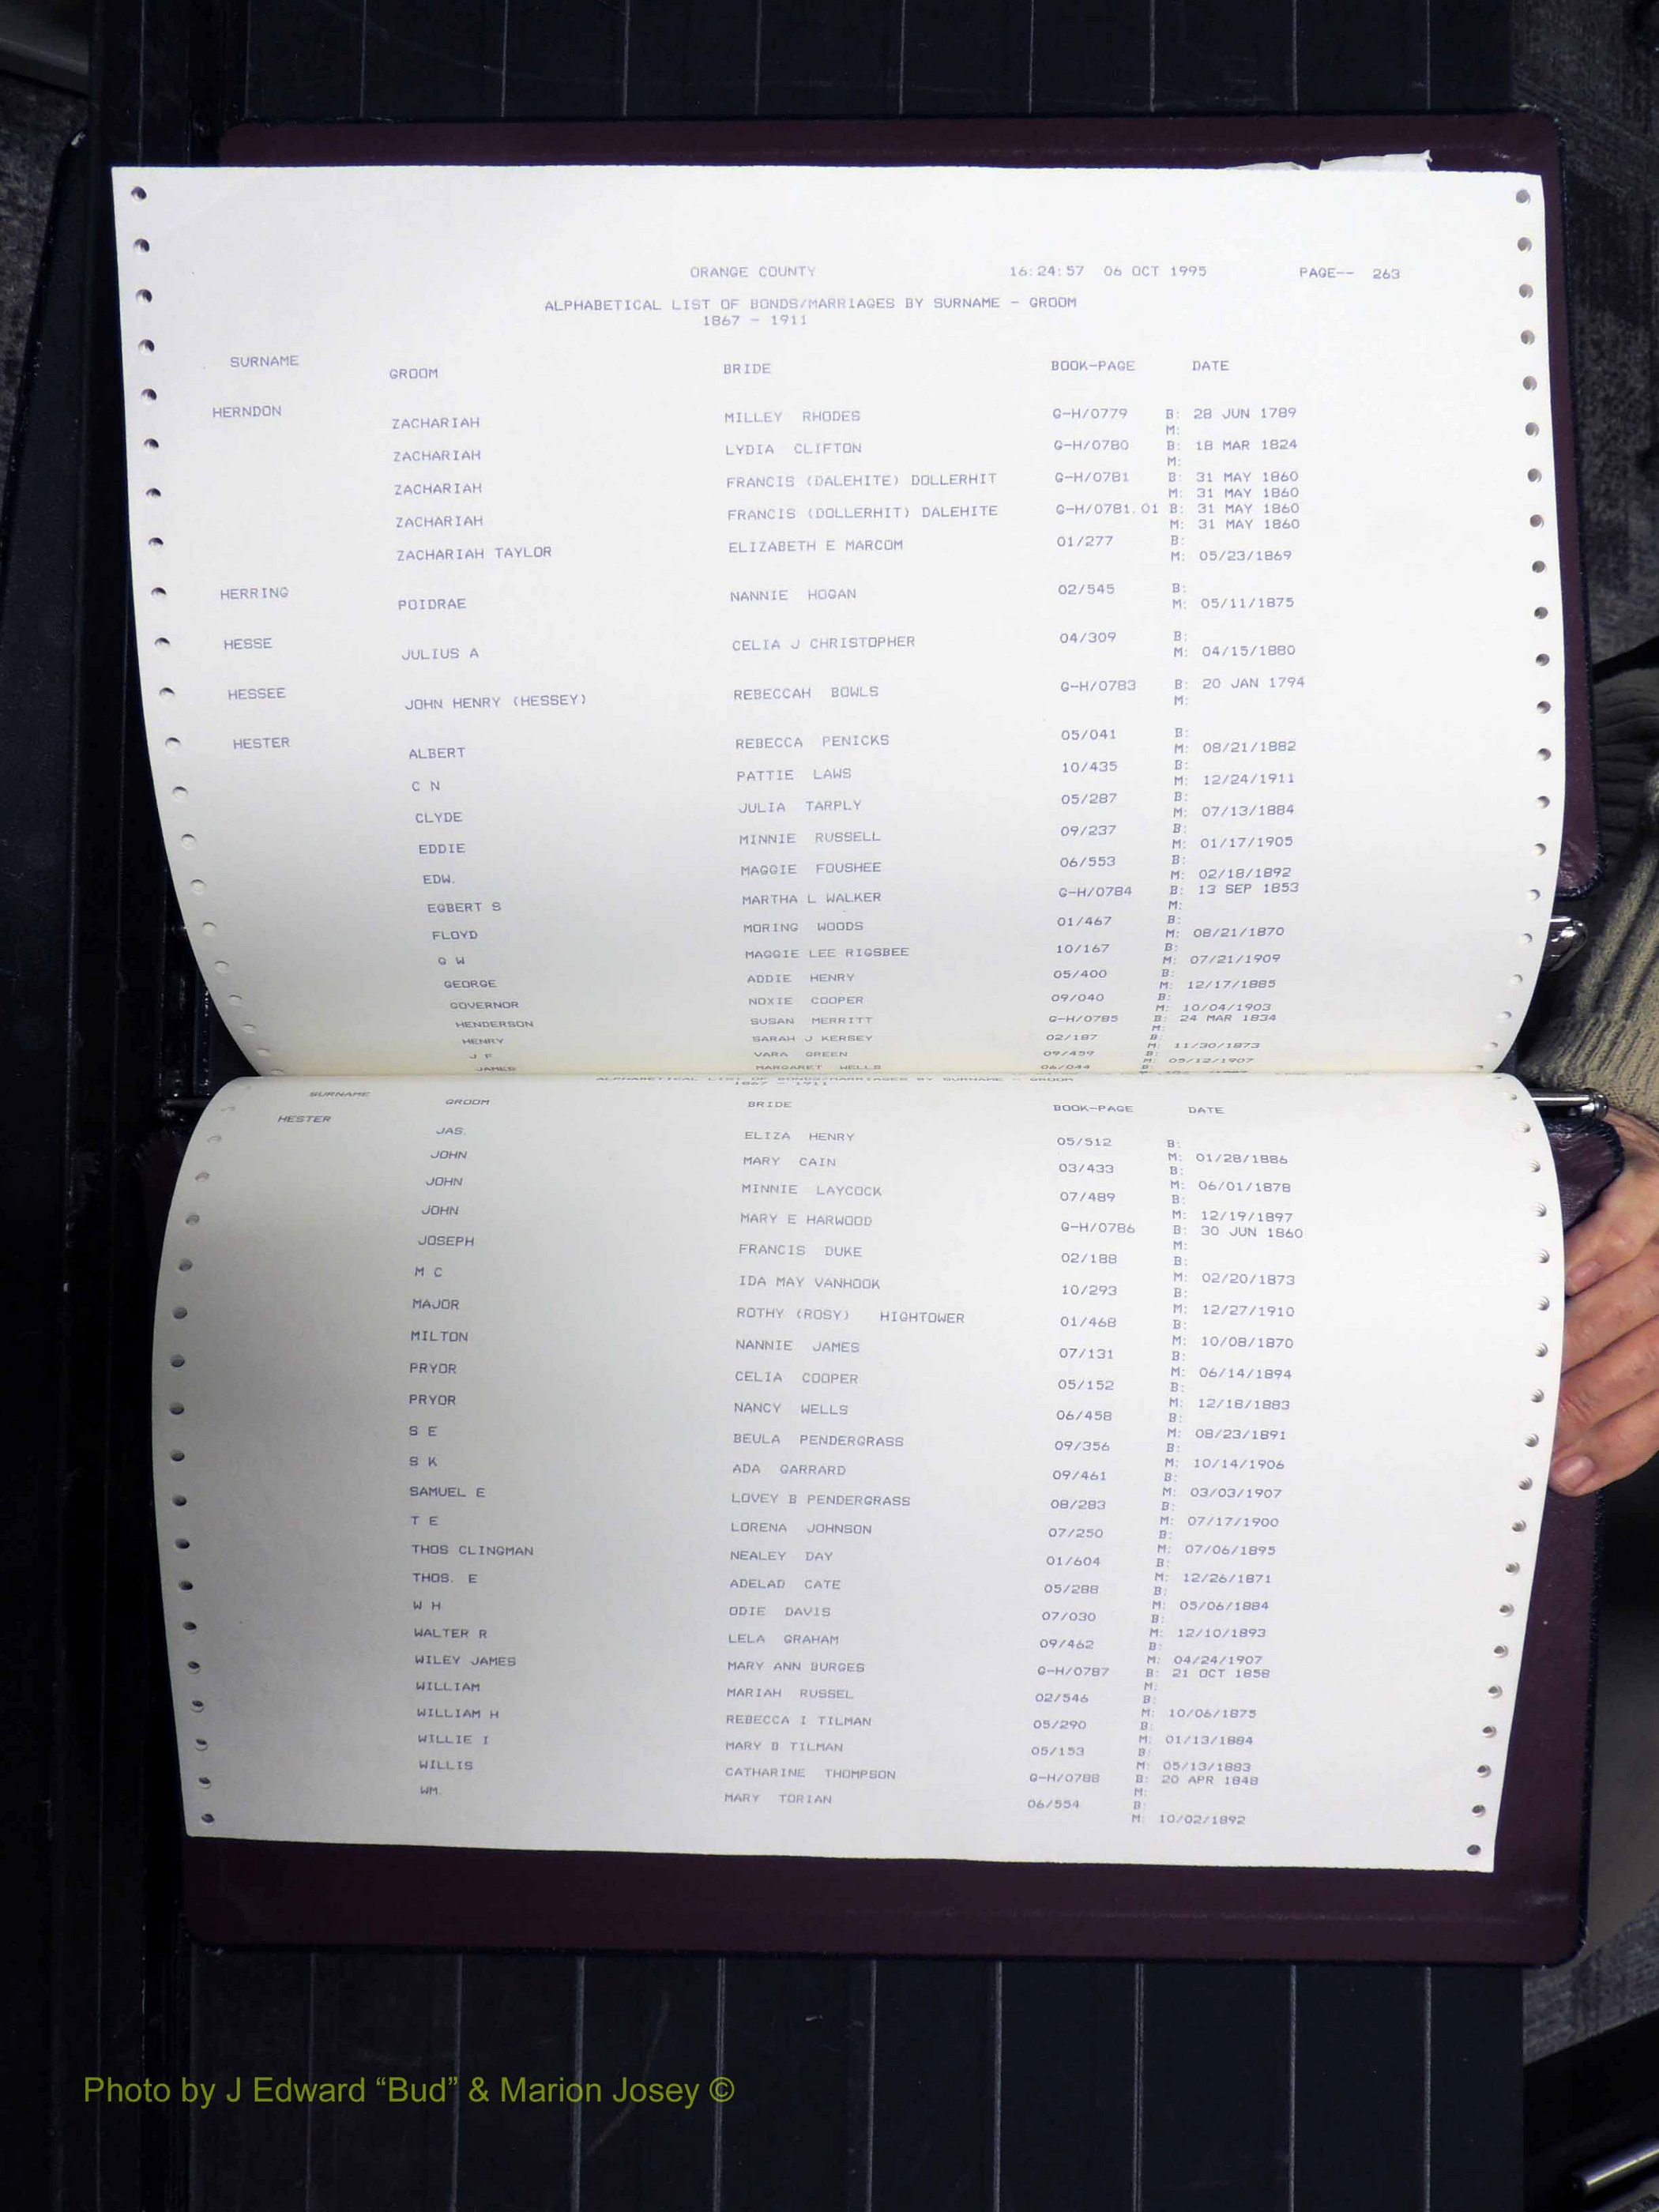 ORANGE COUNTY 16:24:57 06 OCT 1995 PAGE-- 263
ALPHABETICAL LIST OF BONDS/MARRIAGES BY SURNAME - GROOM
1867 - 1911
SURNAME GROOM BRIDE BOOK-PAGE DATE
HERNDON ZACHARIAH MILLEY RHODES G-H/0779 B: 28 JUN 1789
M:
ZACHARIAH LYDIA CLIFTON G-H/0780 B: 18 MAR 1824
M:
ZACHARIAH FRANCIS (DALEHITE) DOLLERHIT G-H/0781 B: 31 MAY 1860
M: 31 MAY 1860
ZACHARIAH FRANCIS (DOLLERHIT) DALEHITE G-H/0781.01 B: 31 MAY 1860
M: 31 MAY 1860
ZACHARIAH TAYLOR ELIZABETH E MARCOM 01/277 B:
M: 05/23/1869
HERRING POIDRAE NANNIE HOGAN 02/545 B:
M: 05/11/1875
HESSE JULIUS A CELIA J CHRISTOPHER 04/309 B:
M: 04/15/1880
HESSEE JOHN HENRY (HESSEY) REBECCAH BOWLS G-H/0783 B: 20 JAN 1794
M:
HESTER ALBERT REBECCA PENICKS 05/041 B:
M: 08/21/1882
C N PATTIE LAWS 10/435 B:
M: 12/24/1911
CLYDE JULIA TARPLY 05/287 B:
M: 07/13/1884
EDDIE MINNIE RUSSELL 09/237 B:
M: 01/17/1905
EDW. MAGGIE FOUSHEE 06/553 B:
M: 02/18/1892
EGBERT S MARTHA L WALKER G-H/0784 B: 13 SEP 1853
M:
FLOYD MORING WOODS 01/467 B:
M: 08/21/1870
G W MAGGIE LEE RIGSBEE 10/167 B:
M: 07/21/1909
GEORGE ADDIE HENRY 05/400 B:
M: 12/17/1885
GOVERNOR NOXIE COOPER 09/040 B:
M: 10/04/1903
HENDERSON SUSAN MERRITT G-H/0785 B: 24 MAR 1834
M:
HENRY SARAH J KERSEY 02/187 B:
M: 11/30/1873
J F VARA GREEN 09/459 B:
M: 05/12/1907
JAMES MARGARET WELLS 06/044 B:
ALPHABETICAL LIST OF BONDS/MARRIAGES BY SURNAME - GROOM
1867 - 1911
SURNAME GROOM BRIDE BOOK-PAGE DATE
HESTER JAS. ELIZA HENRY 05/512 B:
M: 01/28/1886
JOHN MARY CAIN 03/433 B:
M: 06/01/1878
JOHN MINNIE LAYCOCK 07/489 B:
M: 12/19/1897
JOHN MARY E HARWOOD G-H/0786 B: 30 JUN 1860
M:
JOSEPH FRANCIS DUKE 02/188 B:
M: 02/20/1873
M C IDA MAY VANHOOK 10/293 B:
M: 12/27/1910
MAJOR ROTHY (ROSY) HIGHTOWER 01/468 B:
M: 10/08/1870
MILTON NANNIE JAMES 07/131 B:
M: 06/14/1894
PRYOR CELIA COOPER 05/152 B:
M: 12/18/1883
PRYOR NANCY WELLS 06/458 B:
M: 08/23/1891
S E BEULA PENDERGRASS 09/356 B:
M: 10/14/1906
S K ADA GARRARD 09/461 B:
M: 03/03/1907
SAMUEL E LOVEY B PENDERGRASS 08/283 B:
M: 07/17/1900
T E LORENA JOHNSON 07/250 B:
M: 07/06/1895
THOS CLINGMAN NEALEY DAY 01/604 B:
M: 12/26/1871
THOS. E ADELAD CATE 05/288 B:
M: 05/06/1884
W H ODIE DAVIS 07/030 B:
M: 12/10/1893
WALTER R LELA GRAHAM 09/462 B:
M: 04/24/1907
WILEY JAMES MARY ANN BURGES G-H/0787 B: 21 OCT 1858
M:
WILLIAM MARIAH RUSSEL 02/546 B:
M: 10/06/1875
WILLIAM H REBECCA I TILMAN 05/290 B:
M: 01/13/1884
WILLIE I MARY B TILMAN 05/153 B:
M: 05/13/1883
WILLIS CATHARINE THOMPSON G-H/0788 B: 20 APR 1848
M:
WM. MARY TORIAN 06/554 B:
M: 10/02/1892
Photo by J Edward “Bud” & Marion Josey ©